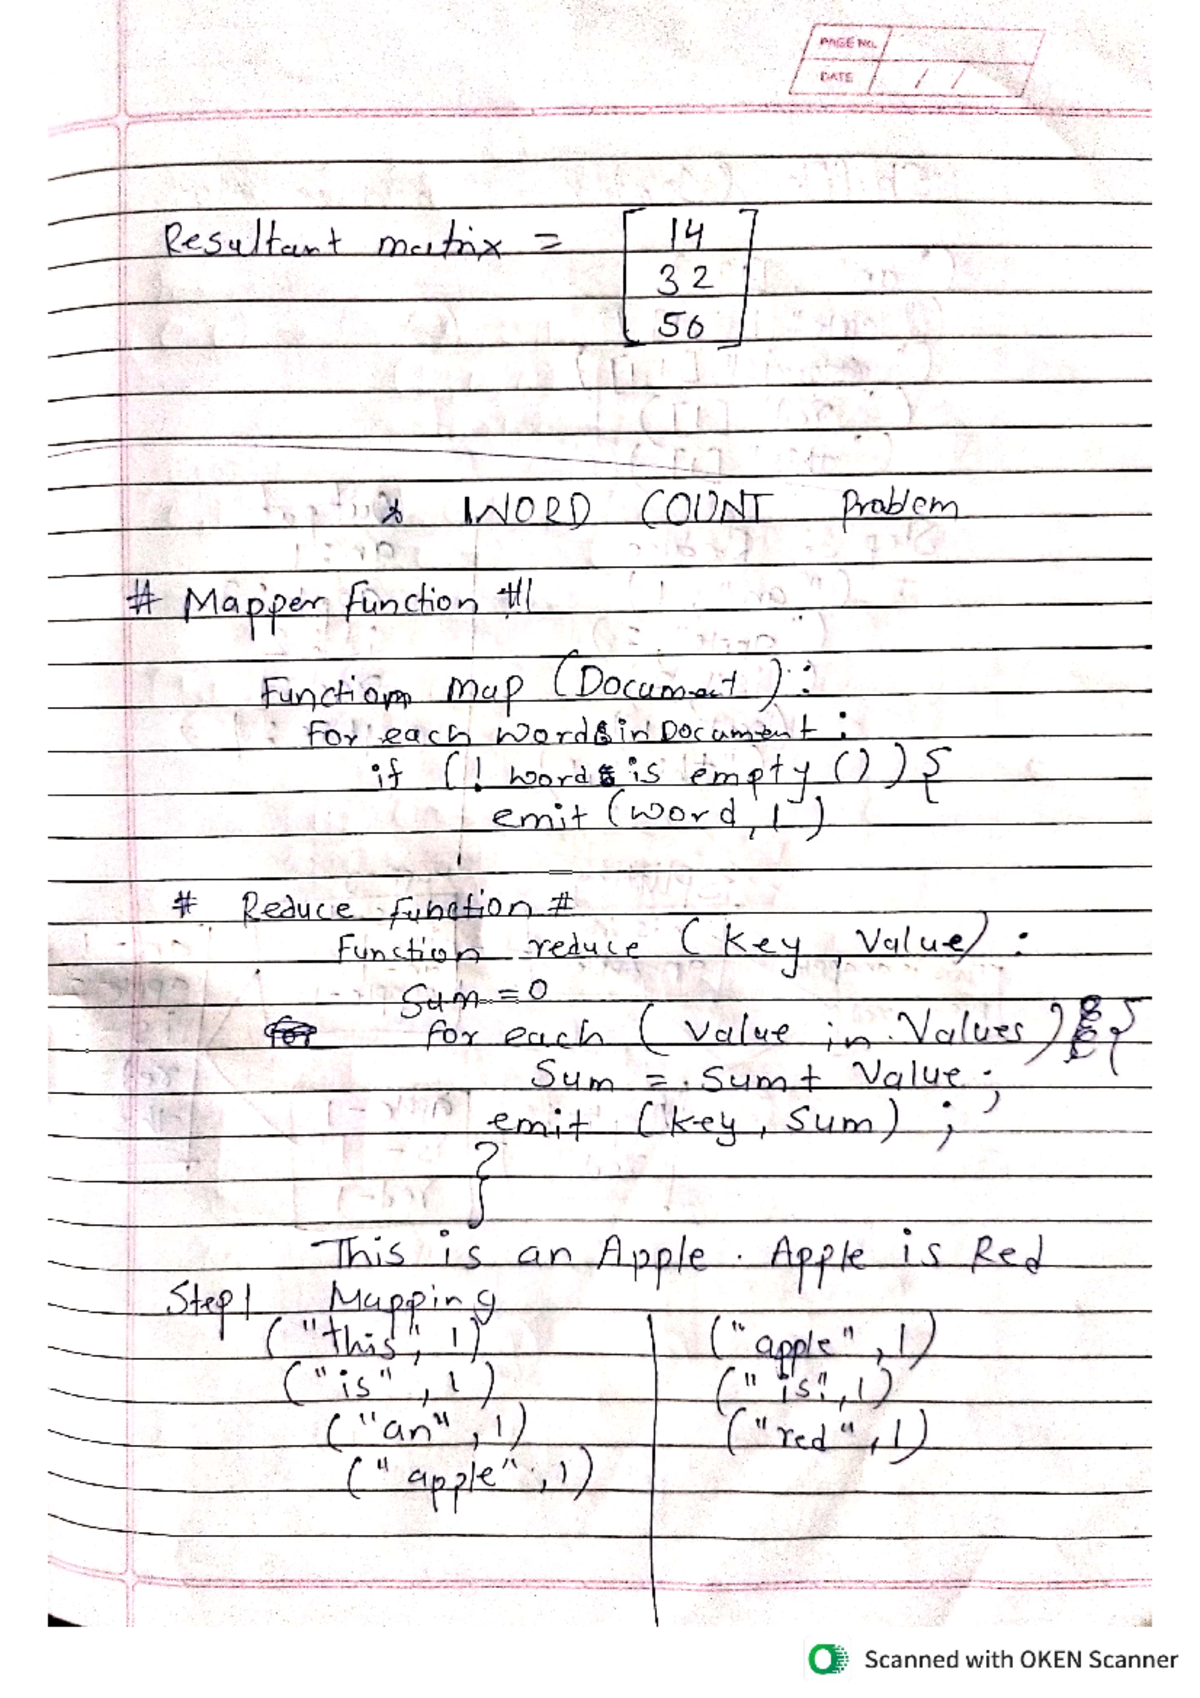 PAGE NO.
DATE / /
Resultant matrix = [ 14
32
50 ]
* WORD COUNT Problem
# Mapper function #
Function map (Document):
for each word in Document:
if (! word is empty ()) {
emit (word, 1)
# Reduce function #
Function reduce (key, Value):
Sum = 0
for each (value in Values) {
Sum = Sum + Value;
emit (key, Sum);
}
This is an Apple. Apple is Red
Step 1 Mapping
("this", 1) ("apple", 1)
("is", 1) ("is", 1)
("an", 1) ("red", 1)
("apple", 1)
Scanned with OKEN Scanner